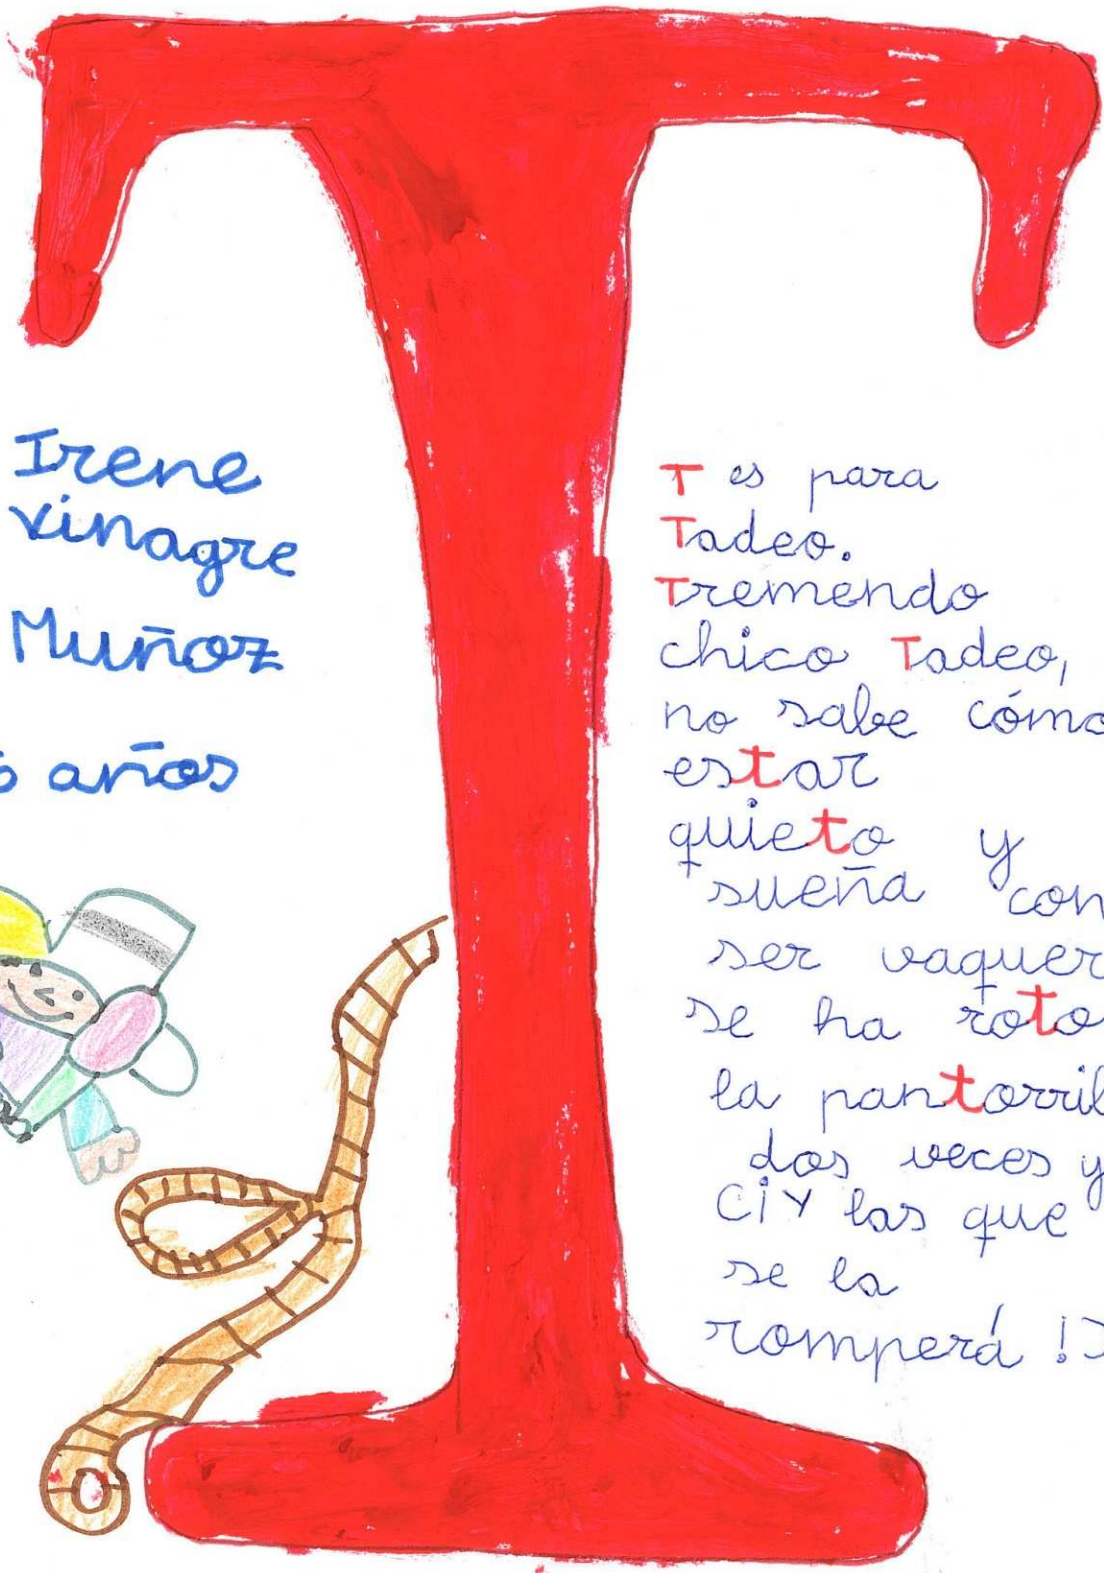 T
Irene
Vinagre
Muñoz
años
T es para
Tadeo.
Tremendo
chico Tadeo,
no sabe cómo
estar
quieto y
sueña con
ser vaquer
se ha roto
la pantorril
dos veces y
(¡Y las que
se la
romperá!)